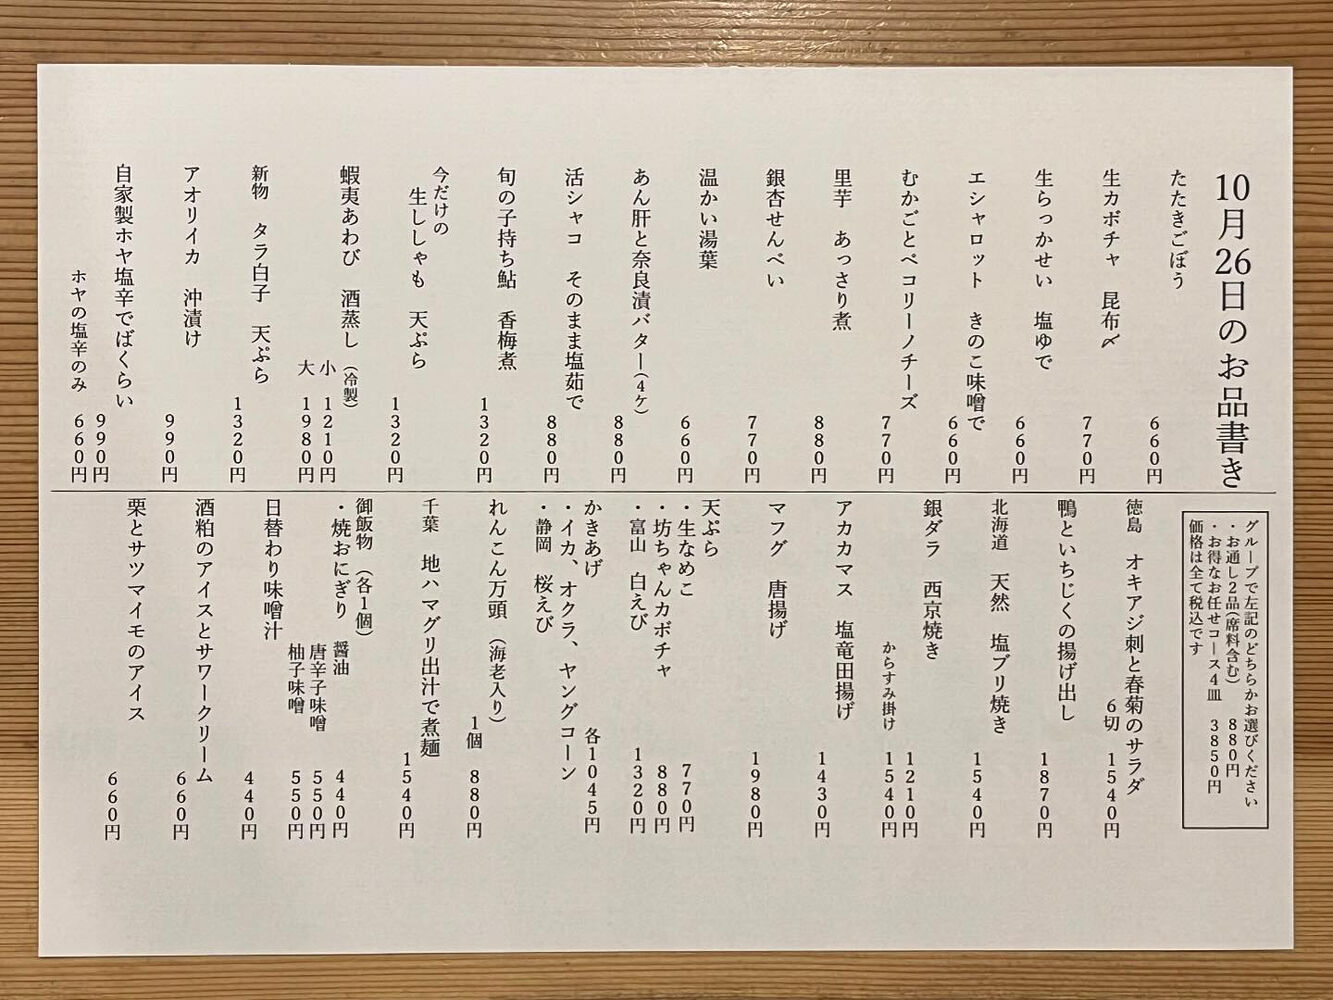 10月26日のお品書き
たたきごぼう
660円
生カボチャ 昆布〆
770円
生らっかせい 塩ゆで
660円
エシャロット きのこ味噌で
660円
むかごとペコリーノチーズ
770円
里芋 あっさり煮
880円
銀杏せんべい
770円
温かい湯葉
660円
あん肝と奈良漬バター(4ケ)
880円
活シャコ そのまま塩茹で
880円
旬の子持ち鮎 香梅煮
1320円
今だけの
生ししゃも 天ぷら
1320円
蝦夷あわび 酒蒸し(冷製)
小 1210円
大 1980円
新物 タラ白子 天ぷら
1320円
アオリイカ 沖漬け
990円
自家製ホヤ塩辛でばくらい
990円
ホヤの塩辛のみ 660円
グループで左記のどちらかお選びください
・お通し2品(席料含む) 880円
・お得なお任せコース4皿 3850円
価格は全て税込です
徳島 オキアジ刺と春菊のサラダ
6切 1540円
鴨といちじくの揚げ出し
1870円
北海道 天然 塩ブリ焼き
1540円
銀ダラ 西京焼き
1210円
からすみ掛け 1540円
アカカマス 塩竜田揚げ
1430円
マフグ 唐揚げ
1980円
天ぷら
・生なめこ 770円
・坊ちゃんカボチャ 880円
・富山 白えび 1320円
かきあげ 各1045円
・イカ、オクラ、ヤングコーン
・静岡 桜えび
れんこん万頭 (海老入り)
1個 880円
千葉 地ハマグリ出汁で煮麺
1540円
御飯物 (各1個)
・焼おにぎり 醤油 440円
唐辛子味噌 550円
柚子味噌 550円
日替わり味噌汁
440円
酒粕のアイスとサワークリーム
660円
栗とサツマイモのアイス
660円